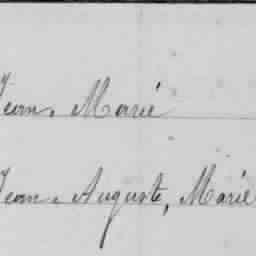 Jean, Marie
Jean, Auguste, Marie